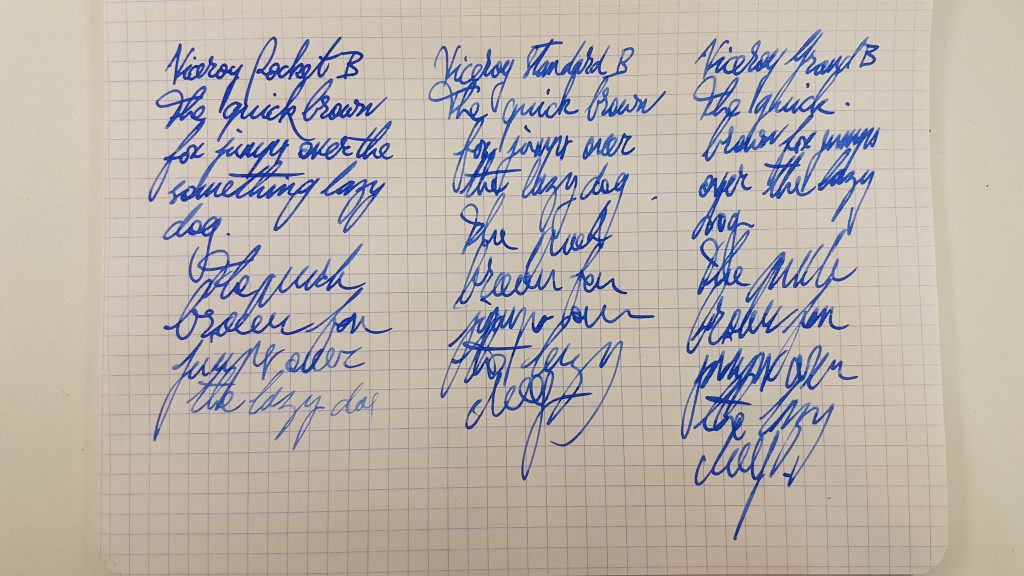 Viceroy Pocket B
The quick brown
fox jumps over the
something lazy
dog.
The quick
brown fox
jumps over
the lazy dog
Viceroy Standard B
The quick brown
fox jumps over
the lazy dog.
The quick
brown fox
jumps over
the lazy
dog
Viceroy Grand B
The quick.
brown fox jumps
over the lazy
dog
The quick
brown fox
jumps over
the lazy
dog